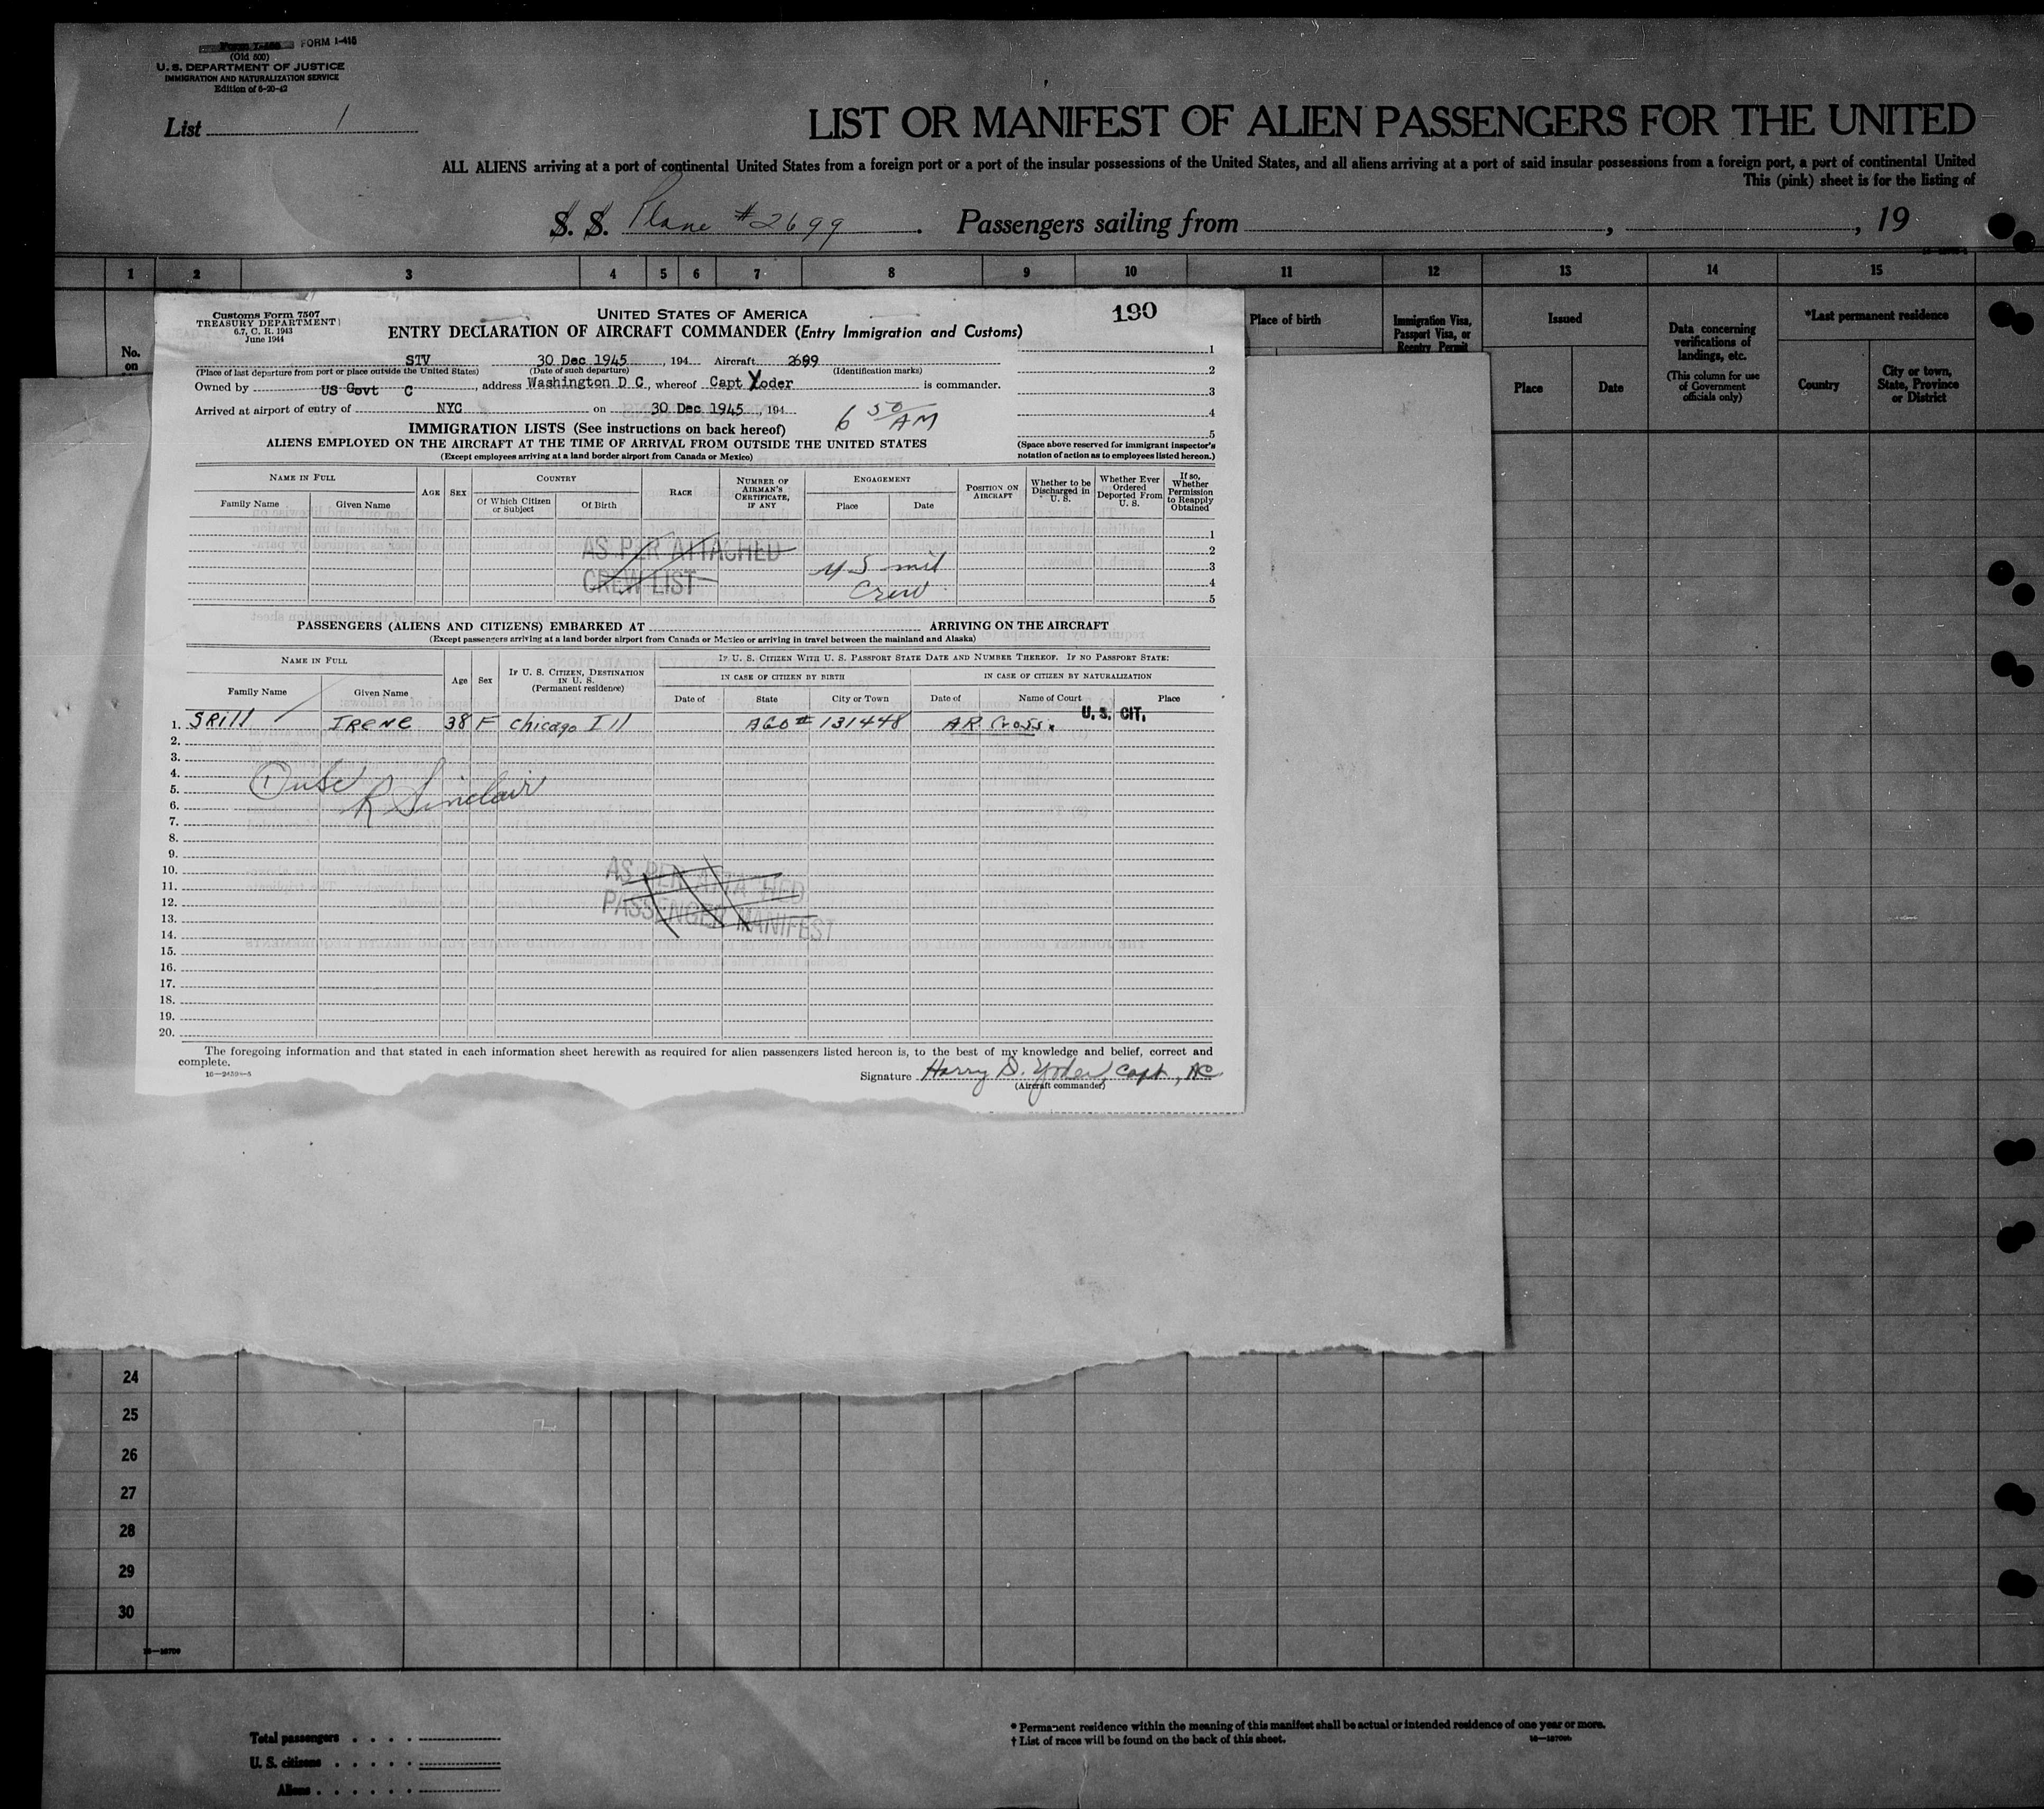 Form I-415 FORM I-415
(Old 500)
U. S. DEPARTMENT OF JUSTICE
IMMIGRATION AND NATURALIZATION SERVICE
Edition of 6-20-42
List 1
LIST OR MANIFEST OF ALIEN PASSENGERS FOR THE UNITED
ALL ALIENS arriving at a port of continental United States from a foreign port or a port of the insular possessions of the United States, and all aliens arriving at a port of said insular possessions from a foreign port, a port of continental United
This (pink) sheet is for the listing of
S. S. Plane #2699 . Passengers sailing from , , 19
1 2 3 4 5 6 7 8 9 10 11 12 13 14 15
No.
on
Place of birth
Immigration Visa,
Passport Visa, or
Reentry Permit
Issued
Place Date
Data concerning
verifications of
landings, etc.
(This column for use
of Government
officials only)
*Last permanent residence
Country
City or town,
State, Province
or District
Customs Form 7507
TREASURY DEPARTMENT
6.7, C. R. 1943
June 1944
UNITED STATES OF AMERICA
190
ENTRY DECLARATION OF AIRCRAFT COMMANDER (Entry Immigration and Customs)
STV 30 Dec 1945 , 194 Aircraft 2699
(Place of last departure from port or place outside the United States) (Date of such departure) (Identification marks)
Owned by US Govt C , address Washington D C , whereof Capt Yoder is commander.
Arrived at airport of entry of NYC on 30 Dec 1945 , 194
6 50 AM
1
2
3
4
5
IMMIGRATION LISTS (See instructions on back hereof)
ALIENS EMPLOYED ON THE AIRCRAFT AT THE TIME OF ARRIVAL FROM OUTSIDE THE UNITED STATES
(Except employees arriving at a land border airport from Canada or Mexico)
(Space above reserved for immigrant inspector's
notation of action as to employees listed hereon.)
NAME IN FULL
Family Name Given Name
AGE SEX
COUNTRY
Of Which Citizen
or Subject
Of Birth
RACE
NUMBER OF
AIRMAN'S
CERTIFICATE,
IF ANY
ENGAGEMENT
Place Date
POSITION ON
AIRCRAFT
Whether to be
Discharged in
U. S.
Whether Ever
Ordered
Deported From
U. S.
If so,
Whether
Permission
to Reapply
Obtained
1
2
3
4
5
AS PER ATTACHED
CREW LIST
U S mil
Crew
PASSENGERS (ALIENS AND CITIZENS) EMBARKED AT ARRIVING ON THE AIRCRAFT
(Except passengers arriving at a land border airport from Canada or Mexico or arriving in travel between the mainland and Alaska)
NAME IN FULL
Family Name Given Name
Age Sex
IF U. S. CITIZEN, DESTINATION
IN U. S.
(Permanent residence)
IF U. S. CITIZEN WITH U. S. PASSPORT STATE DATE AND NUMBER THEREOF. IF NO PASSPORT STATE:
IN CASE OF CITIZEN BY BIRTH IN CASE OF CITIZEN BY NATURALIZATION
Date of State City or Town Date of Name of Court Place
1. SRill IRENE 38 F Chicago Ill AGO # 131448 AR Cross. U. S. CIT.
2.
3.
4.
5.
6.
R Sinclair
7.
8.
9.
10.
11.
12.
13.
14.
AS PER ATTACHED
PASSENGER MANIFEST
15.
16.
17.
18.
19.
20.
The foregoing information and that stated in each information sheet herewith as required for alien passengers listed hereon is, to the best of my knowledge and belief, correct and
complete.
Signature Harry D. Yoder, Capt, AC
(Aircraft commander)
24
25
26
27
28
29
30
Total passengers . . . .
U. S. citizens . . . . .
Aliens . . . . . . .
* Permanent residence within the meaning of this manifest shall be actual or intended residence of one year or more.
† List of races will be found on the back of this sheet.